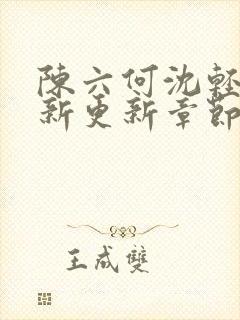 陳六何沈輕
新更新章節
王成雙